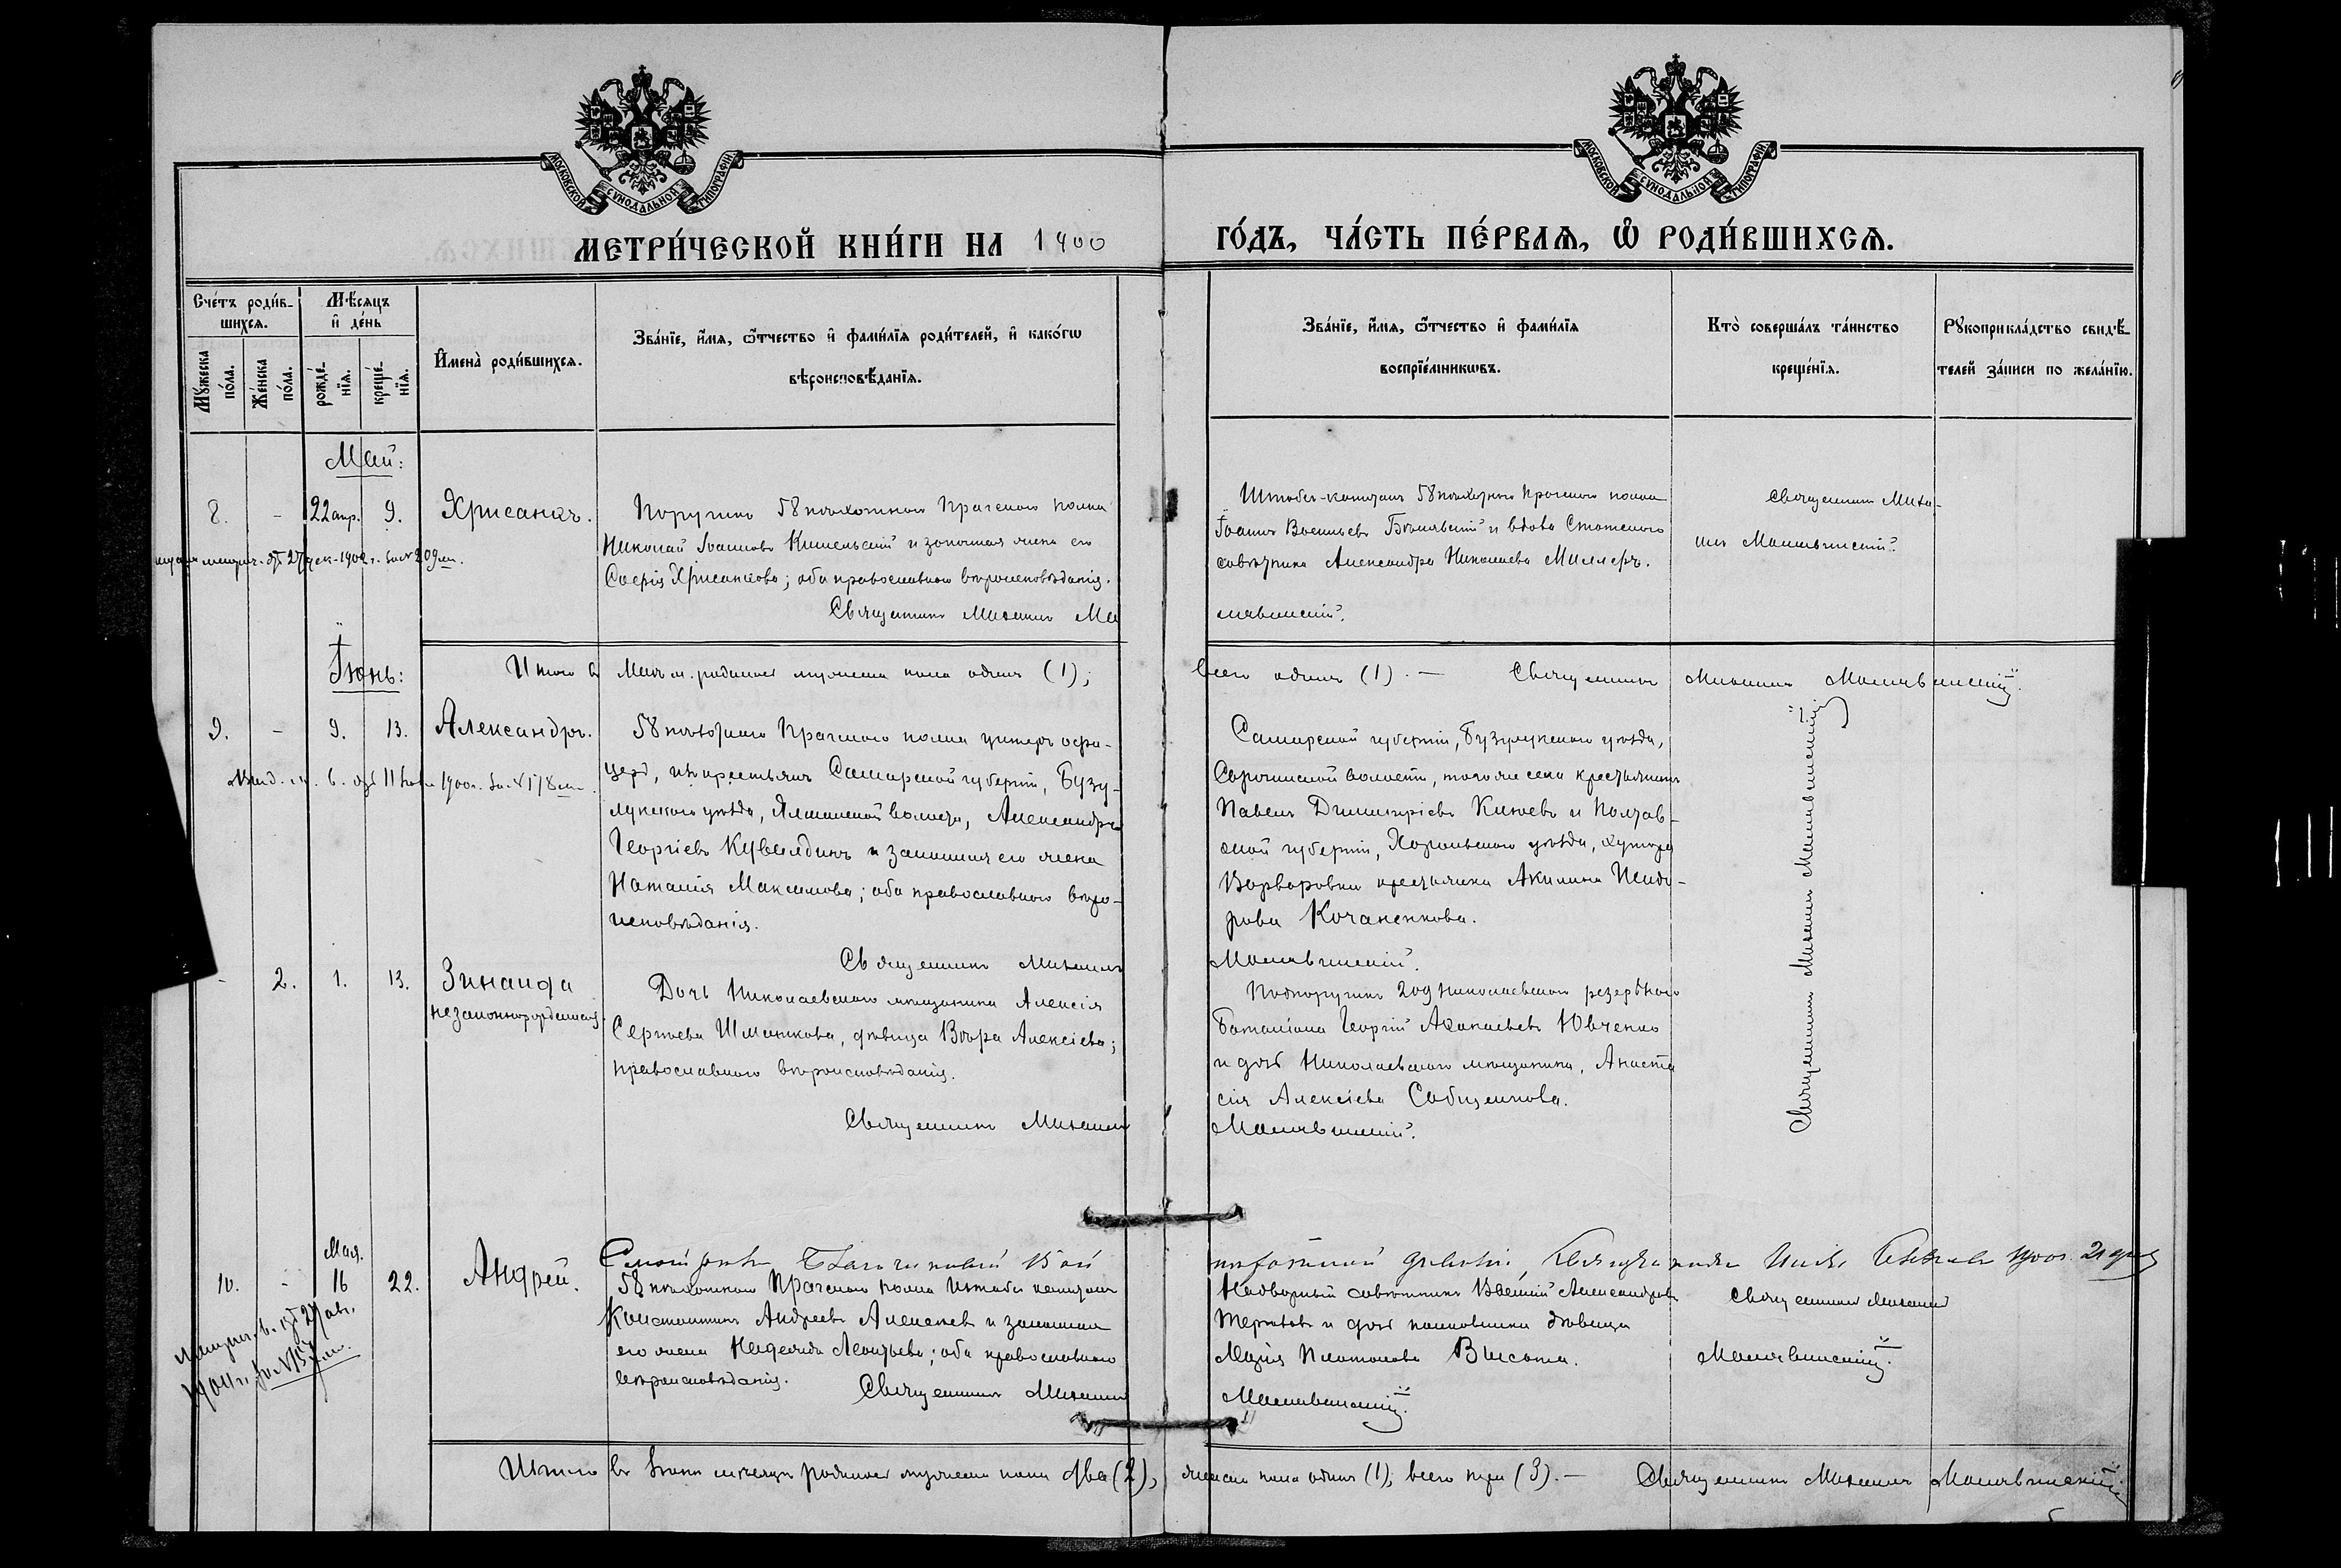 МОСКОВСКОЙ СУНОДАЛЬНОЙ ТИПОГРАФІИ.
МОСКОВСКОЙ СУНОДАЛЬНОЙ ТИПОГРАФІИ.
МЕТРИ́ЧЕСКОЙ КНИ́ГИ НА 1900
ГО́ДЪ, ЧА́СТЬ ПЕ́РВАѦ, Ѡ҆ РОДИ́ВШИХСѦ.
Сче́тъ роди́в-
шихсѧ.
Мѣ́сяцъ
и҆ де́нь
Мꙋ́жеска
по́ла.
Же́нска
по́ла.
рожде́-
нїѧ.
креще́-
нїѧ.
И҆мена̀ роди́вшихсѧ.
Зва́нїе, и҆́мѧ, ѻ҆́тчество и҆ фами́лїѧ роди́телей, и҆ како́гѡ
вѣроисповѣ́данїѧ.
Зва́нїе, и҆́мѧ, ѻ҆́тчество и҆ фами́лїѧ
воспрїе́мникѡвъ.
Кто̀ соверша́лъ та́инство
креще́нїѧ.
Рꙋкоприкла́дство свидѣ́-
телей за́писи по жела́нїю.
Май:
8. - 22 апр. 9. Хрисанѳъ.
Поручикъ 58 пѣхотнаго Прагскаго полка
Николай Іоанновъ и законная жена его
Софія Хрисанѳова; оба православнаго вѣроисповѣданія.
Священникъ Михаилъ Ма
Штабсъ-капитанъ 58 пѣхотнаго Прагскаго полка
Іоаннъ Васильевъ и вдова Статскаго
совѣтника Александра Николаева Миллеръ.
лявинскій.
Священникъ Миха-
илъ Малявинскій.
Іюнь:
Итого въ Маѣ м. родилось мужеска пола одинъ (1);
всего одинъ (1). — Священникъ Михаилъ Малявинскій.
9. - 9. 13. Александръ.
58 пѣхотнаго Прагскаго полка унтеръ офи-
церъ, изъ крестьянъ Самарской губерніи, Бузу-
лукскаго уѣзда, волости, Александръ
Георгіевъ Кувалдинъ и законная его жена
Наталія Максимова; оба православнаго вѣро-
исповѣданія.
Священникъ Михаилъ
Самарской губерніи, Бузулукскаго уѣзда,
Сорочинской волости, того же села крестьянинъ
Павелъ Димитріевъ Князевъ и Полтав-
ской губерніи, Хорольскаго уѣзда, хутора
Варваровки крестьянка Акилина Исидо-
рова Кочаненкова.
Малявинскій.
Священникъ Михаилъ Малявинскій
- 2. 1. 13. Зинаида
незаконнорожденная.
Дочь Николаевскаго мѣщанина Алексія
Сергѣева Шманкова, дѣвица Вѣра Алексіева;
православнаго вѣроисповѣданія.
Священникъ Михаилъ
Подпоручикъ 209 Николаевскаго резервнаго
баталіона Георгій Аѳанасьевъ Ювченко
и дочь Николаевскаго мѣщанина, Анаста
сія Алексіева
Малявинскій.
Мая.
10. - 16 22. Андрей.
Смотрѣлъ Благочинный
1900 г.
58 пѣхотнаго Прагскаго полка Штабсъ капитанъ
Константинъ Андреевъ Алексѣевъ и законная
его жена Надежда Леонтьева; оба православнаго
вѣроисповѣданія. Священникъ Михаилъ
Надворный совѣтникъ Василій Александровъ
и дочь полковника дѣвица
Марія Платонова Высота.
Малявинскій.
Священникъ Михаилъ
Малявинскій.
Итого въ Іюнѣ мѣсяцѣ родилось мужеска пола два (2), женска пола одинъ (1), всего три (3). — Священникъ Михаилъ Малявинскій